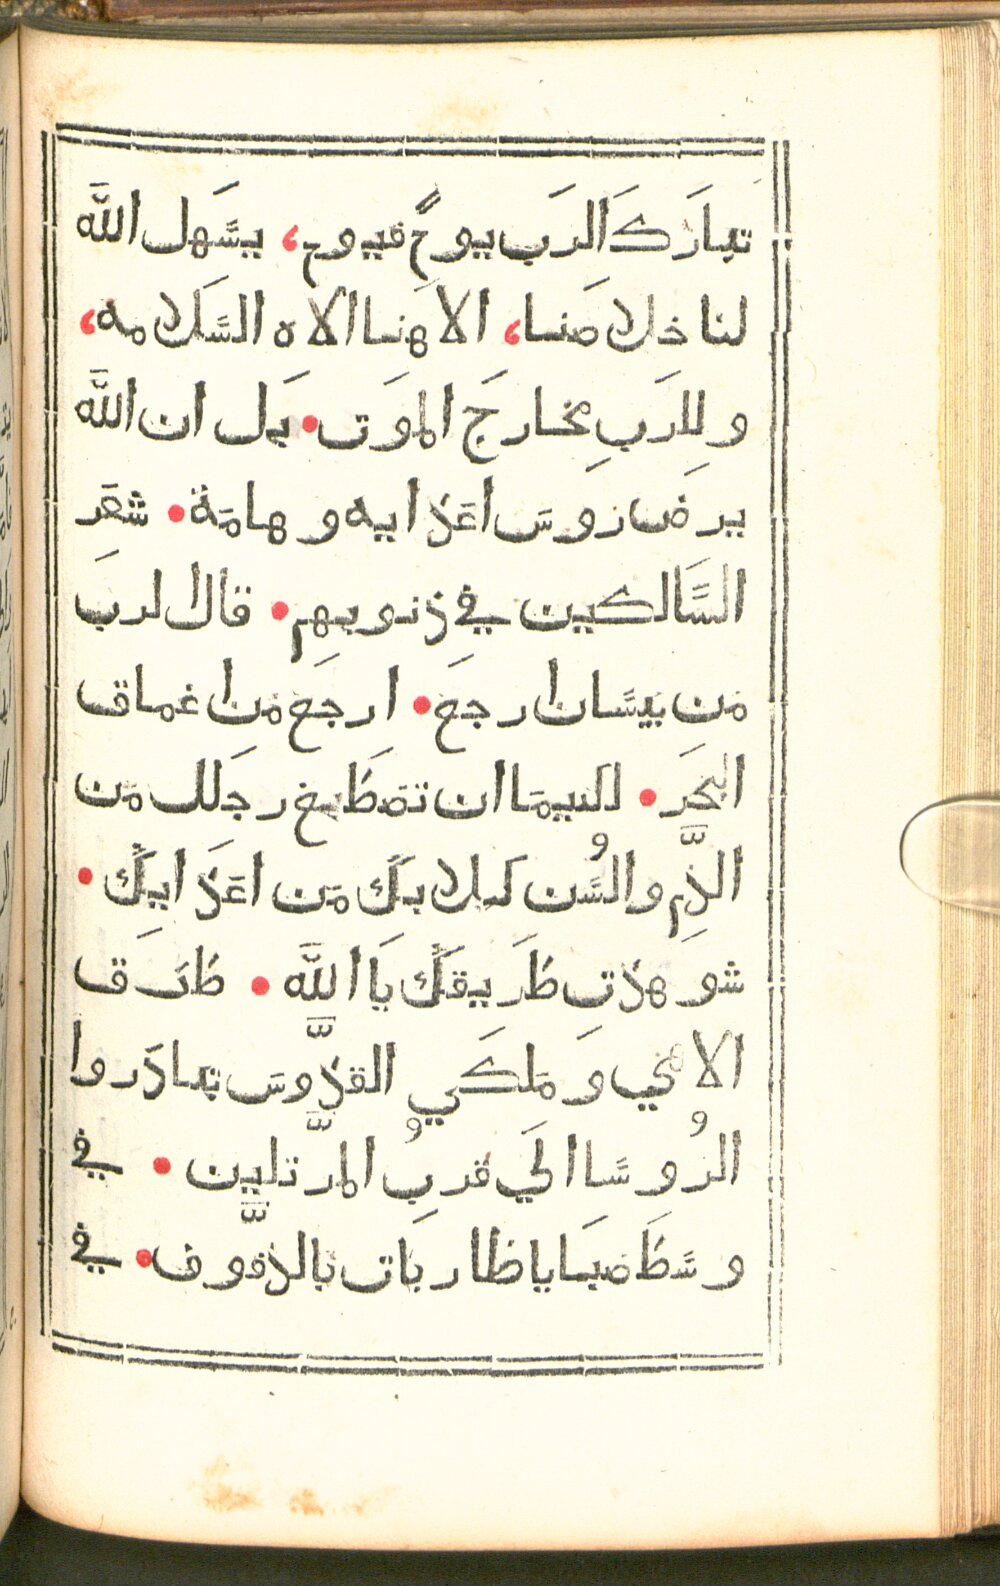 تبارَكَ الرَب يوحً فيوم، يسَّهل اللَّه
لنا خلاصَنا، الاهَنا الاه السَّلامه،
وللِرَبِ مخارجَ الموَت• بَل ان اللَّه
يرضَ روسَ اعَذايه وهامَة• شعَر
السَّالكين في ذنوبهِم• قال الرب
مَن بيسَّان ارجَع• ارجَع مَن اغماق
البحَر• لكيمَا ان تمَطَبغ رجَلك مَن
الذِّم والسُّن كلابكَ مَن اعَذايكَ•
شوهذَت طَريقكَ ياَ اللَّه• طرَق
الاهَي وَمَلكَي القذِّوسَ تبَاذَروا
الرُوسَّا الَي قربُ المرِّتلين• في
وسَّطَ صَبَايا ظاربَات بالذِّفوف• في